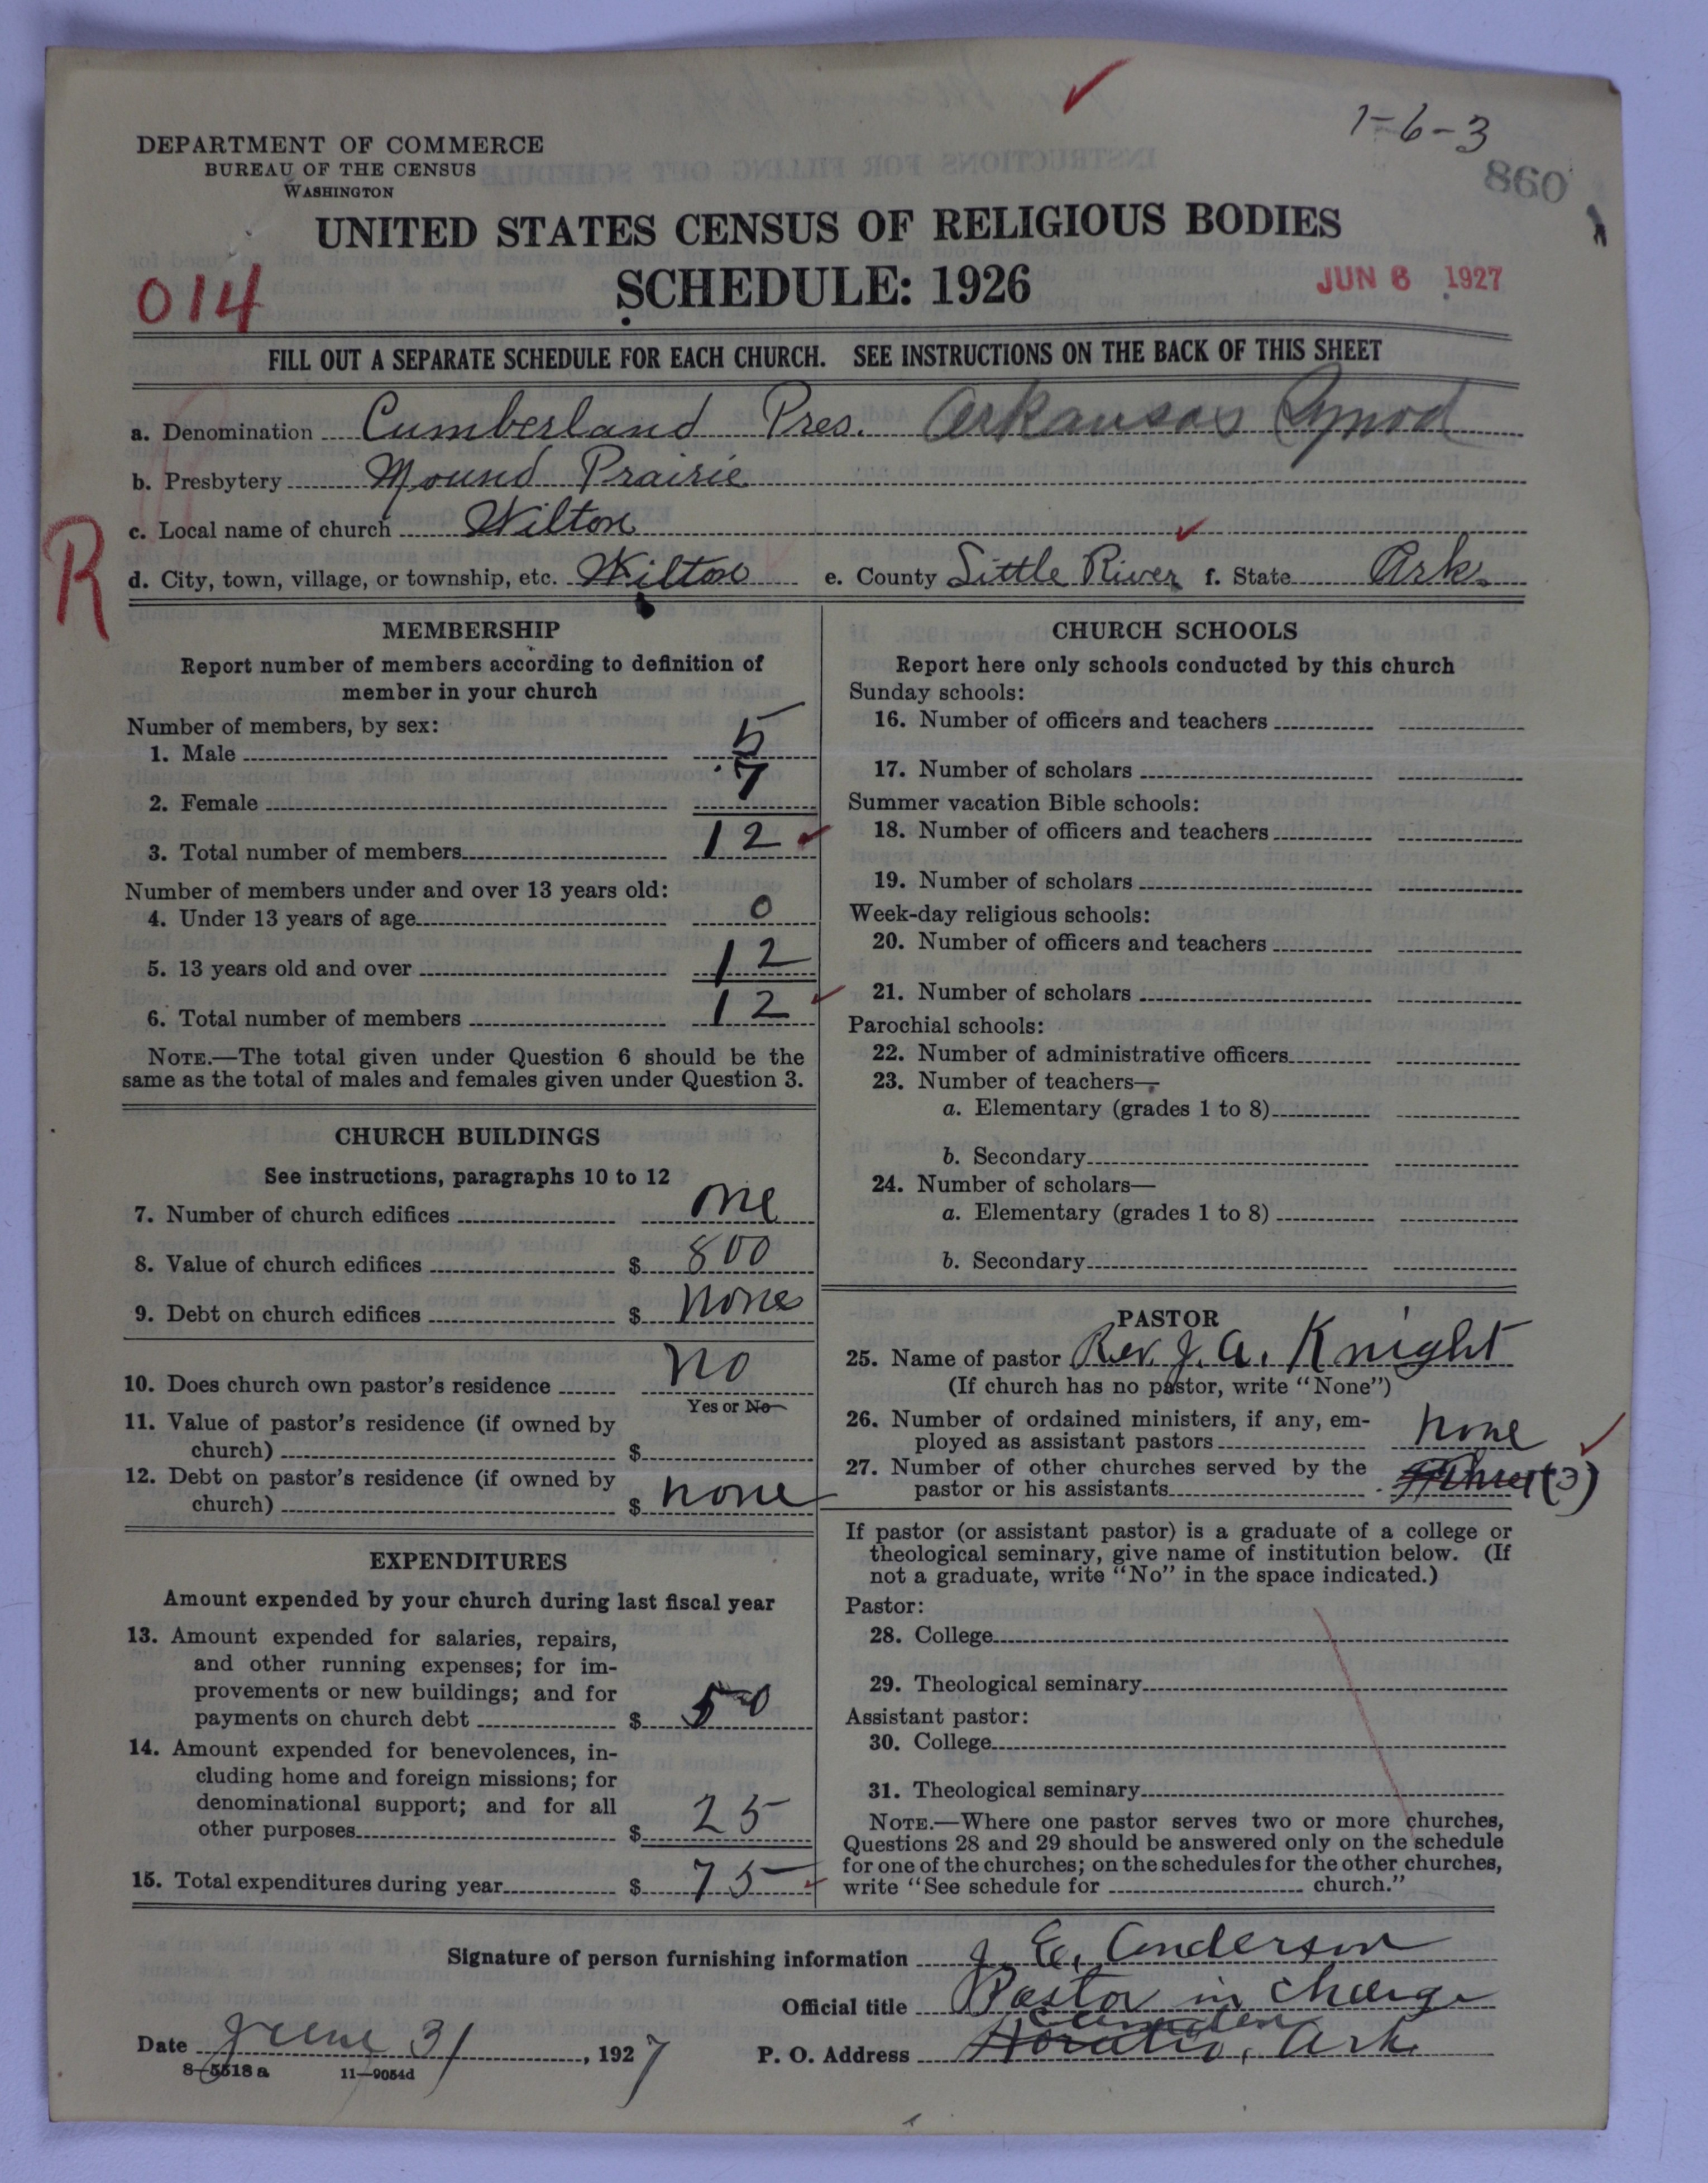 1-6-3
860
DEPARTMENT OF COMMERCE
BUREAU OF THE CENSUS
WASHINGTON
UNITED STATES CENSUS OF RELIGIOUS BODIES
SCHEDULE: 1926
014
JUN 6 1927
FILL OUT A SEPARATE SCHEDULE FOR EACH CHURCH. SEE INSTRUCTIONS ON THE BACK OF THIS SHEET
a. Denomination Cumberland Pres. Arkansas Synod
b. Presbytery Mound Prairie
c. Local name of church Wilton
R
d. City, town, village, or township, etc. Wilton e. County Little River f. State Ark.
MEMBERSHIP
Report number of members according to definition of
member in your church
Number of members, by sex:
1. Male 5
2. Female 7
3. Total number of members 12
Number of members under and over 13 years old:
4. Under 13 years of age 0
5. 13 years old and over 12
6. Total number of members 12
NOTE.—The total given under Question 6 should be the
same as the total of males and females given under Question 3.
CHURCH BUILDINGS
See instructions, paragraphs 10 to 12
7. Number of church edifices one
8. Value of church edifices $ 800
9. Debt on church edifices $ none
10. Does church own pastor's residence no
Yes or No
11. Value of pastor's residence (if owned by
church) $
12. Debt on pastor's residence (if owned by
church) $ none
EXPENDITURES
Amount expended by your church during last fiscal year
13. Amount expended for salaries, repairs,
and other running expenses; for im-
provements or new buildings; and for
payments on church debt $ 50
14. Amount expended for benevolences, in-
cluding home and foreign missions; for
denominational support; and for all
other purposes $ 25
15. Total expenditures during year $ 75
CHURCH SCHOOLS
Report here only schools conducted by this church
Sunday schools:
16. Number of officers and teachers
17. Number of scholars
Summer vacation Bible schools:
18. Number of officers and teachers
19. Number of scholars
Week-day religious schools:
20. Number of officers and teachers
21. Number of scholars
Parochial schools:
22. Number of administrative officers
23. Number of teachers—
a. Elementary (grades 1 to 8)
b. Secondary
24. Number of scholars—
a. Elementary (grades 1 to 8)
b. Secondary
PASTOR
25. Name of pastor Rev. J. A. Knight
(If church has no pastor, write "None")
26. Number of ordained ministers, if any, em-
ployed as assistant pastors none
27. Number of other churches served by the
pastor or his assistants (3)
If pastor (or assistant pastor) is a graduate of a college or
theological seminary, give name of institution below. (If
not a graduate, write "No" in the space indicated.)
Pastor:
28. College
29. Theological seminary
Assistant pastor:
30. College
31. Theological seminary
NOTE.—Where one pastor serves two or more churches,
Questions 28 and 29 should be answered only on the schedule
for one of the churches; on the schedules for the other churches,
write "See schedule for church."
Signature of person furnishing information J. E. Anderson
Official title Pastor in charge
Camden
Date June 31, 1927 P. O. Address Horatio, Ark.
8-5518 a 11—9054d